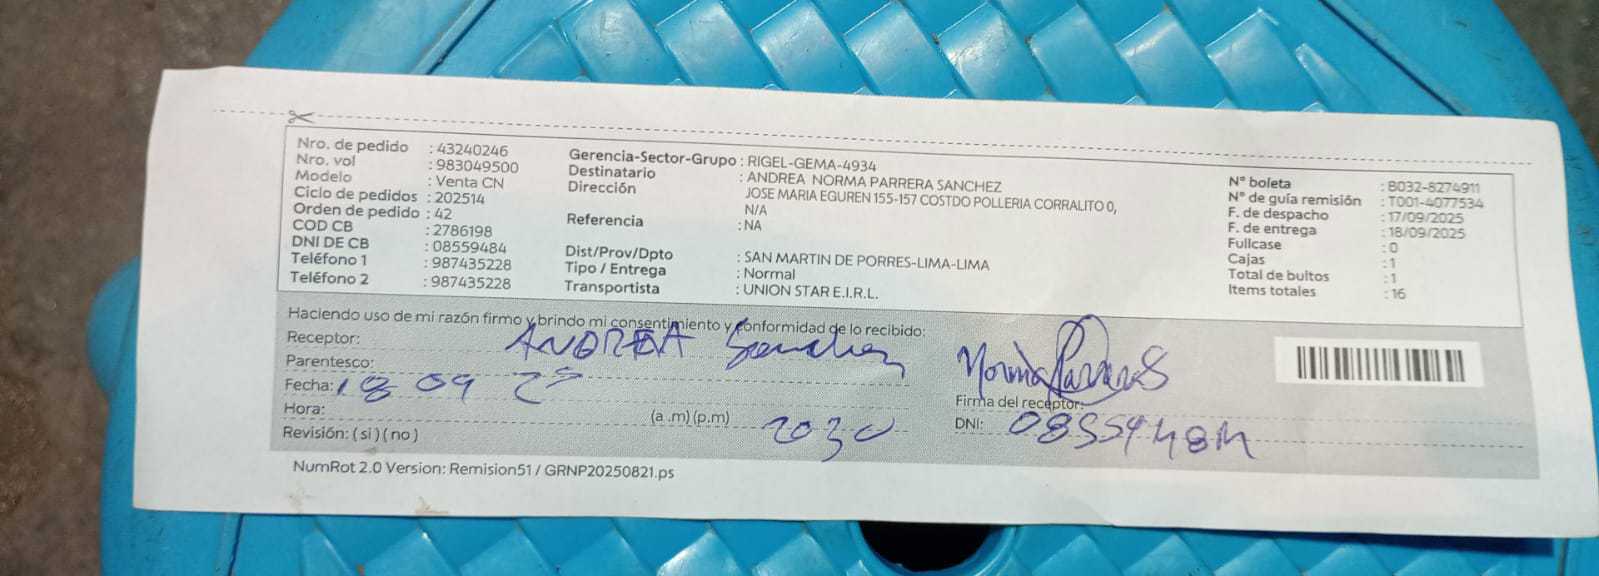 Nro. de pedido : 43240246
Nro. vol : 983049500
Modelo : Venta CN
Ciclo de pedidos : 202514
Orden de pedido : 42
COD CB : 2786198
DNI DE CB : 08559484
Teléfono 1 : 987435228
Teléfono 2 : 987435228
Gerencia-Sector-Grupo : RIGEL-GEMA-4934
Destinatario : ANDREA NORMA PARRERA SANCHEZ
Dirección JOSE MARIA EGUREN 155-157 COSTDO POLLERIA CORRALITO 0,
N/A
Referencia : NA
Dist/Prov/Dpto : SAN MARTIN DE PORRES-LIMA-LIMA
Tipo / Entrega : Normal
Transportista : UNION STAR E.I.R.L.
N° boleta : B032-8274911
N° de guía remisión : T001-4077534
F. de despacho : 17/09/2025
F. de entrega : 18/09/2025
Fullcase : 0
Cajas : 1
Total de bultos : 1
Items totales : 16
Haciendo uso de mi razón firmo y brindo mi consentimiento y conformidad de lo recibido:
Receptor: ANDREA Sanchez
Parentesco:
Fecha: 18 09 25
Hora: (a .m) (p.m) 2030
Revisión: ( si ) ( no )
Norma Parrera S
Firma del receptor:
DNI: 08559484
NumRot 2.0 Version: Remision51 / GRNP20250821.ps